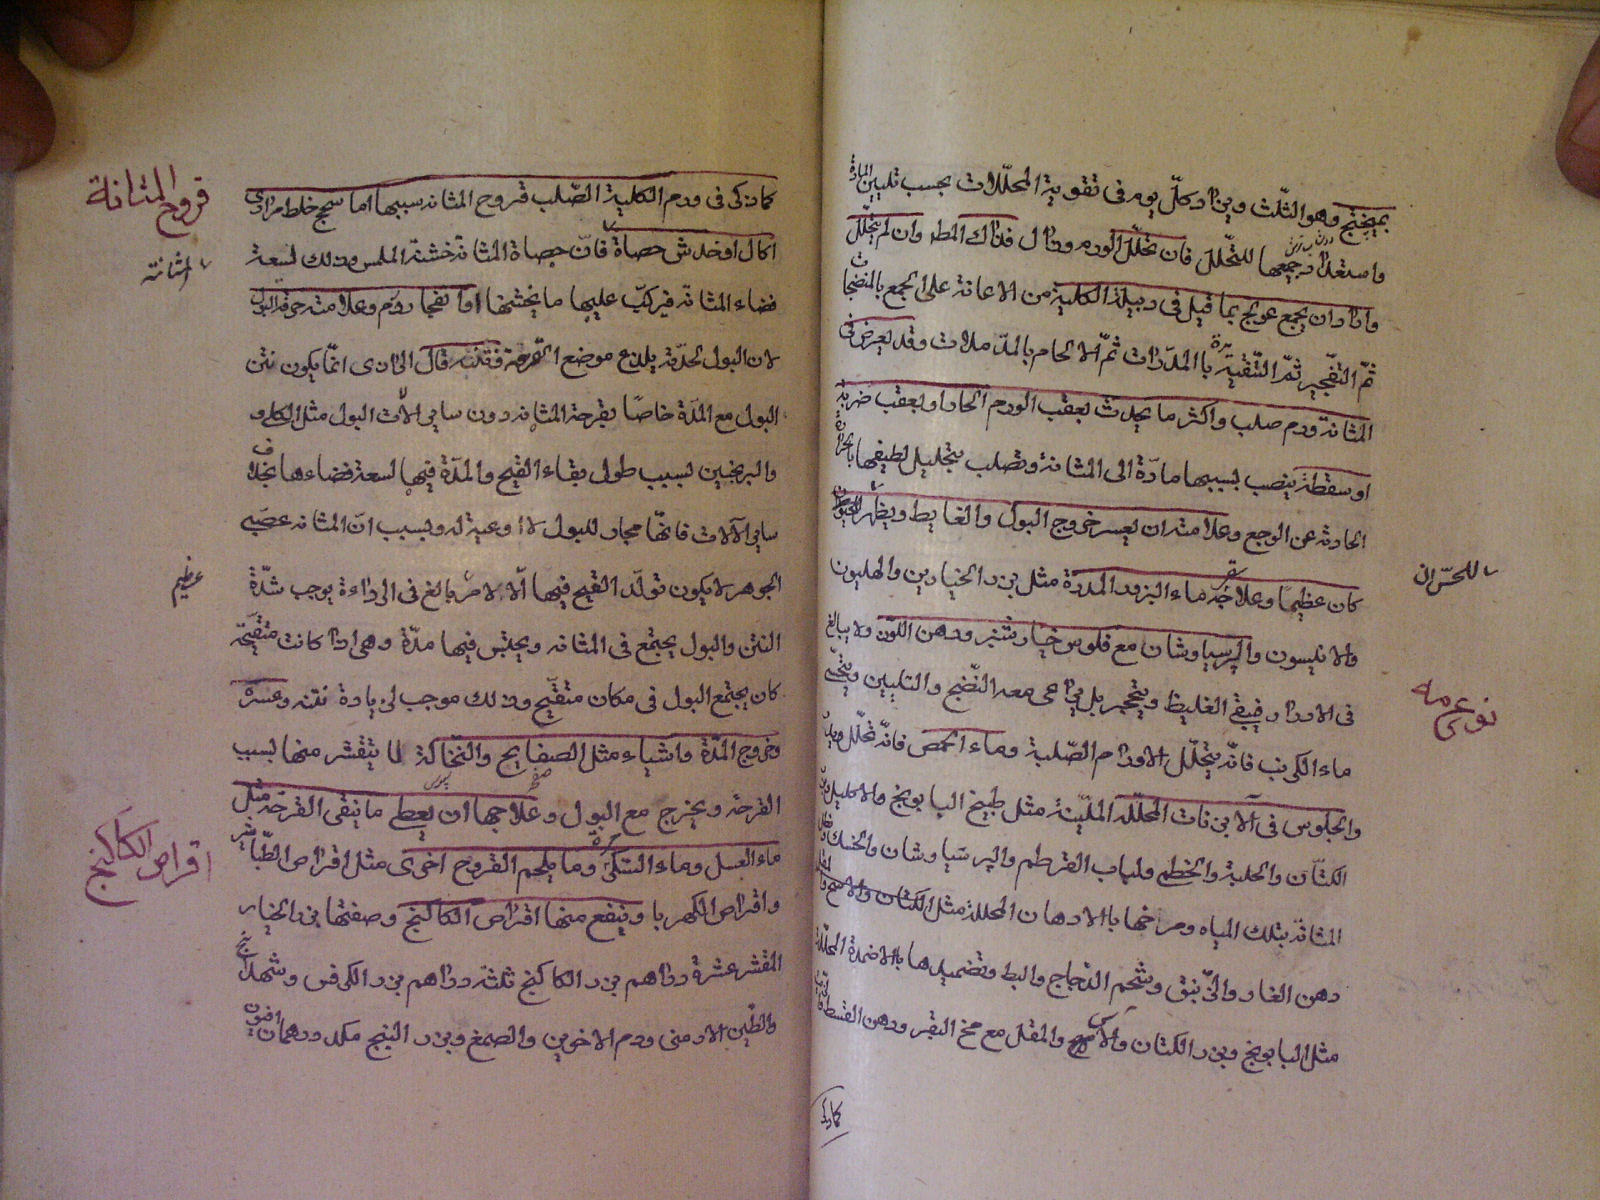 بميبختج وهو الثلث ويزاد كل يوم فى تقوية المحللات بحسب تليين المادة
واستعدادها للتحلل فان تحلل الورم وزال فذاك المطلوب وان لم يتحلل
واراد ان يجمع عولج بما قيل فى دبيلة الكلية من الاعانة على الجمع بالمنضجات
ثم التفجير ثم التنقية بالمدرات ثم الالحام بالمدملات وقد يعرض فى
المثانة ورم صلب واكثر ما يحدث بعقب الورم الحار او بعقب ضربة
او سقطة ينصب بسببها مادة الى المثانة وتصلب بتحليل لطيفها بالحرارة
الحادثة عن الوجع وعلامته ان يعسر خروج البول والغايط ويظهر
كان عظيما وعلاجه ماء البزور المدرة مثل بزر الخيارين والهليون
والانيسون والپرسياوشان مع فلوس خيارشنبر ودهن اللوز ولا يبالغ
فى الادرار فيبقى الغليظ ويتحجر بل يراعى معه النضج والتليين ويتحسى
ماء الكرنب فانه يتحلل الاورام الصلبة وماء الحمص فانه تحلل ويلين
والجلوس فى الابزنات المحللة الملينة مثل طبيخ البابونج والاكليل وبزر
الكتان والحلبة والخطمى ولباب القرطم والپرسياوشان والخسك
المثانة بتلك المياه ومرخها بالادهان المحللة مثل الكتان
دهن الغار والزنبق وشحم الدجاج والبط وتضميدها بالاضمدة المحللة
مثل البابونج وبزر الكتان والمقل مع مخ البقر ودهن القسط
للحس ان
نوع منه
كما ذكر
كما ذكر فى ورم الكلية الصلب قروح المثانه سببها اما سحج خلط مرارى
اكال او خدش حصاة فان حصاة المثانة خشنة الملمس وذلك لسعة
فضاء المثانة فيركب عليها ما يخشنها او انفجار ورم وعلامته حرقة البول
لان البول لحدته يلذع موضع القرحة ونتنه قال الرازى انما يكون نتن
البول مع المدة خاصا بقرحة المثانه دون ساير الات البول مثل الكلى
والبربخين بسبب طول بقاء القيح والمدة فيها لسعة فضاءها بخلاف
ساير الالات فانها مجار للبول لا اوعية له وبسبب ان المثانه عصبى
الجوهر لا يكون تولد القيح فيها الا لامر بالغ فى الرداءة يوجب شدة
النتن والبول يجتمع فى المثانه ويحتبس فيها مدة وهى اذا كانت متقيحة
كان يجتمع البول فى مكان متقيح وذلك موجب لزيادة نتنه وعسره
وخروج المدة واشياء مثل الصفايح والنخالة لما يتقشر منها بسبب
القرحة ويخرج مع البول وعلاجها ان يعطى ما ينقى القرحة مثل
ماء العسل وماء السكر وما يلحم القروح اخرى مثل اقراص الطباشير
واقراص الكهربا وينفع منها اقراص الكاكنج وصفتها بزر الخيار
المقشر عشرة دراهم بزر الكاكنج ثلثة دراهم بزر الكرفس وشهدانج
والطين الارمنى ودم الاخوين والصمغ وبزر البنج مكد درهمان افيون
قروح المثانة
المثانة
عظيم
اقراص الكاكنج